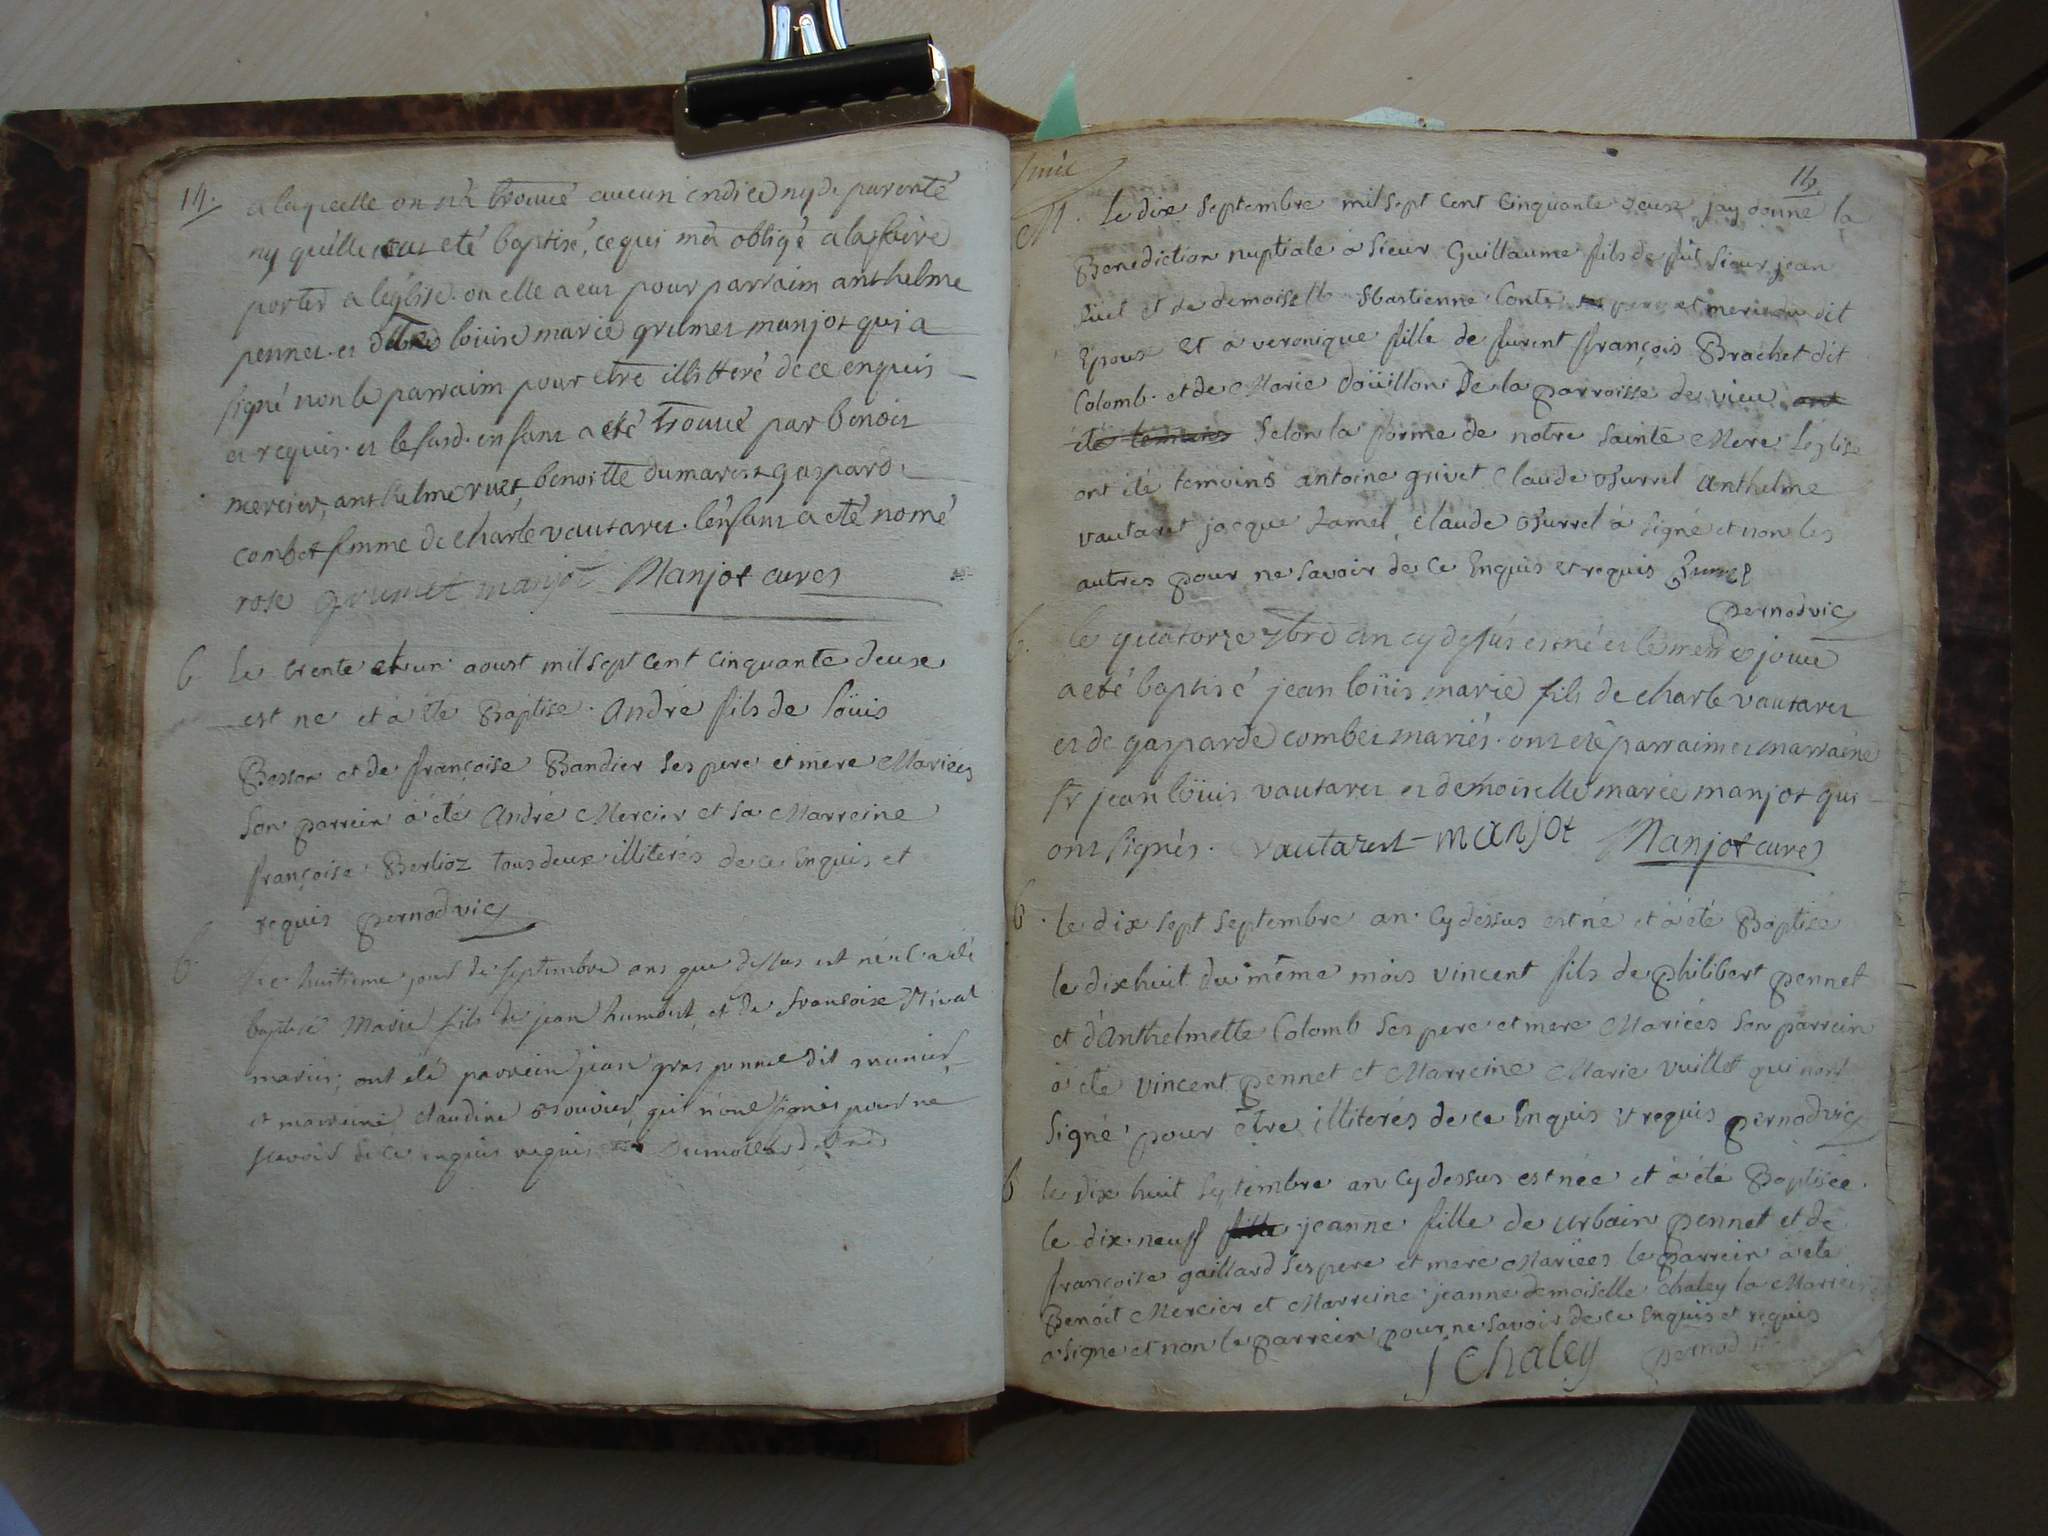 14.
a laquelle on n'a trouvé aucun indice ny de parenté
ny qu'elle eut eté baptisé, ce qui m'a obligé a la faire
porter a l'église. ou elle a eut pour parrain anthelme
pennet. et loüise marie grumet manjot qui a
signé non le parraim pour etre illitteré de ce enquis
et requis. et le susd. enfant a eté trouvé par benoit
mercier, anthelme ruet, benoitte dumarest gaspard.
combet femme de charle vautaret. l'enfant a eté nomé
rose grumet manjot Manjot curez
b Le trente et un aoust mil sept cent cinquante deux
est ne et à été Baptise. André fils de Loüis
Besson et de françoise Bandier ses pere et mere Mariées
son parrein à été André Mercier et sa Marreine
françoise Berlioz tous deux illiterés de ce Enquis et
requis pernod vic
b. Le huitieme jour de septembre ans que dessus est né et a été
baptisé Marie fils de jean humbert et de francoise
mariés, ont été parrein jean gros pennet dit
et marreine claudine qui n'ont signés pour ne
scavoir de ce enquis requis
15.
M. Le dix septembre mil sept cent cinquante deux jay donné la
Benediction nuptiale à sieur Guillaume fils de fût sieur jean
et de demoiselle sbastienne Conte pere et mere du dit
Epoux Et a veronique fille de furent françois Brachet dit
Colomb. et de Marie doüillon De la parroisse de vieu ont
été témoins Selon la forme de notre sainte Mere l'église
ont été temoins antoine grivet Claude anthelme
vautaret jacque claude à signé et non les
autres pour ne savoir de ce Enquis et requis
pernod vic
b. le quatorze 7bre an cy desús est né et le meme jour
a eté baptisé jean loüis marie fils de charle vautaret
et de gasparde combet mariés. ont eté parraim et marraine
sr jean loüis vautaret et demoiselle marie manjot qui
ont signés. vautaret manjot Manjot curez
b. le dix sept septembre an. Cy dessus est né et à été Baptisé
le dixhuit du même mois vincent fils de philibert pennet
et d'Anthelmette Colomb ses pere et mere Mariées son parrein
à été vincent pennet et Marreine Marie vuillet qui nont
signé pour être illiterés de ce Enquis et requis pernod vic
b le dix huit septembre an Cy dessus est née et à été Baptisée
le dix neuf fille jeanne fille de urbain pennet et de
françoise gaillard ses pere et mere Mariées le parrein à été
Benoit Mercier et Marreine jeanne demoiselle chaley la Marreine
a signe et non le parrein pour ne savoir de ce Enquis et requis
J Chaley pernod vic